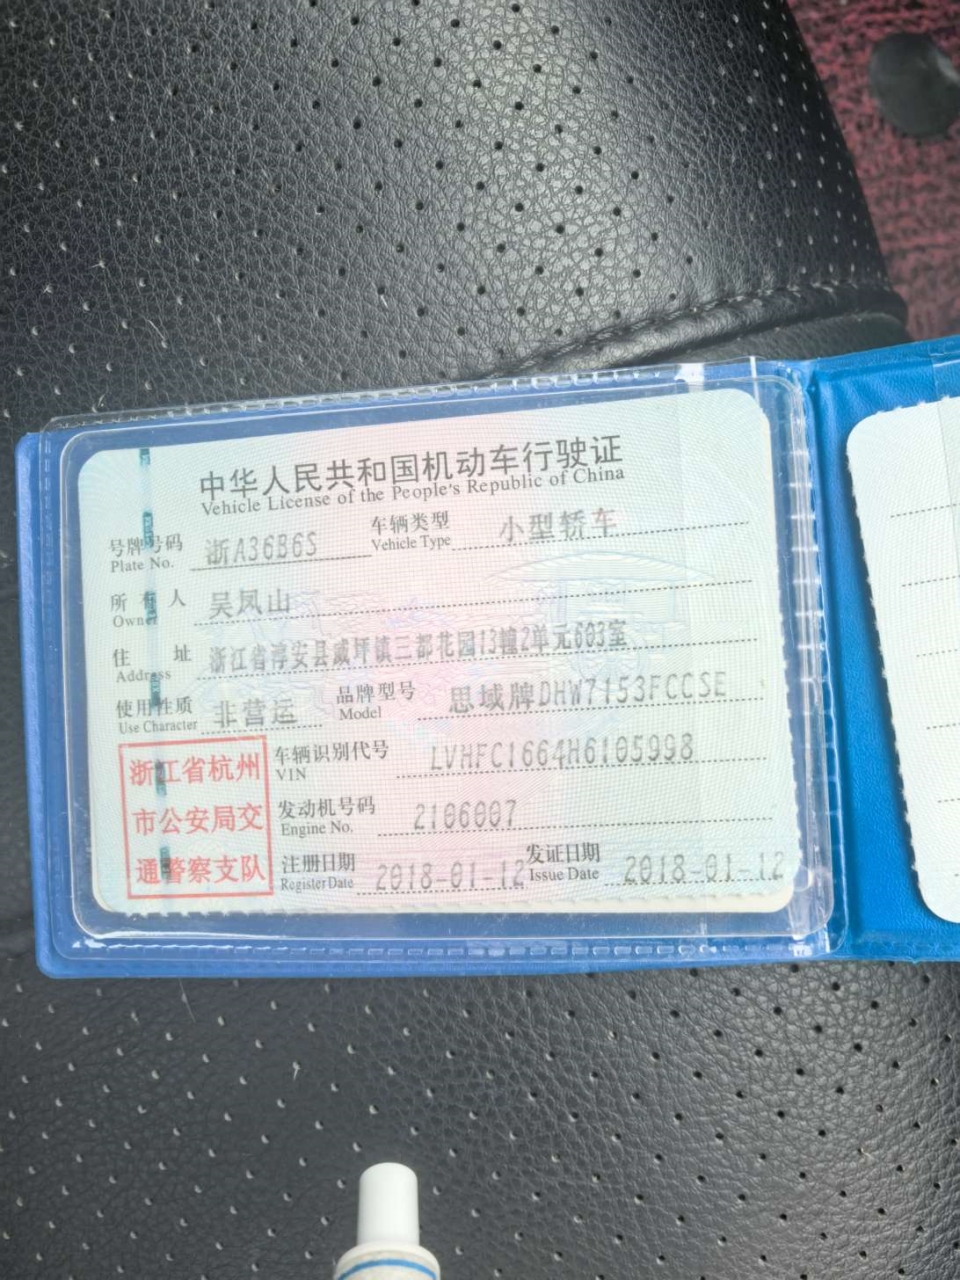 中华人民共和国机动车行驶证
Vehicle License of the People's Republic of China
号牌号码 浙A36B6S 车辆类型 小型轿车
Plate No. Vehicle Type
所有人 吴凤山
Owner
住址 浙江省淳安县威坪镇三都花园13幢2单元603室
Address
使用性质 非营运 品牌型号 思域牌DHW7153FCCSE
Use Character Model
浙江省杭州
市公安局交
通警察支队
车辆识别代号 LVHFC1664H6105998
VIN
发动机号码 2106007
Engine No.
注册日期 2018-01-12 发证日期 2018-01-12
Register Date Issue Date